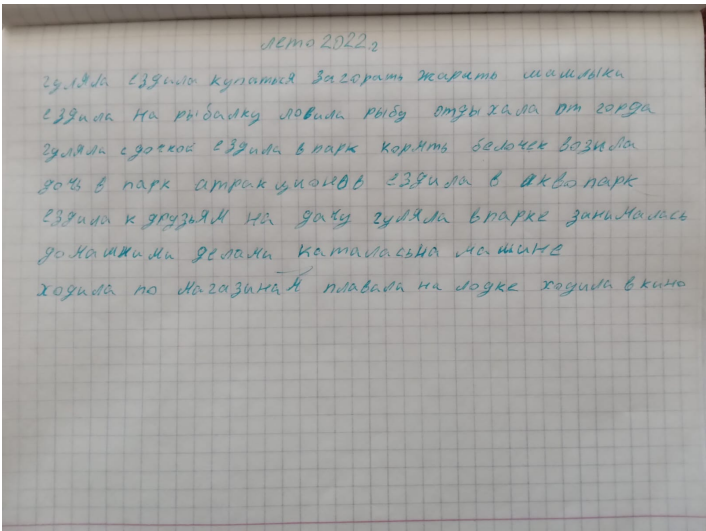 лето 2022.г
гуляла ездила купатья загорать жарить шашлыки
ездила на рыбалку ловила рыбу отдыхала от горда
гуляла с дочкой ездила в парк корять белочек возыла
дочь в парк атракционов ездила в аквопарк
ездила к друзьям на дачу гуляла в парке занималась
домашними делами каталасьна машине
ходила по магазинам плавала на лодке ходила в кино